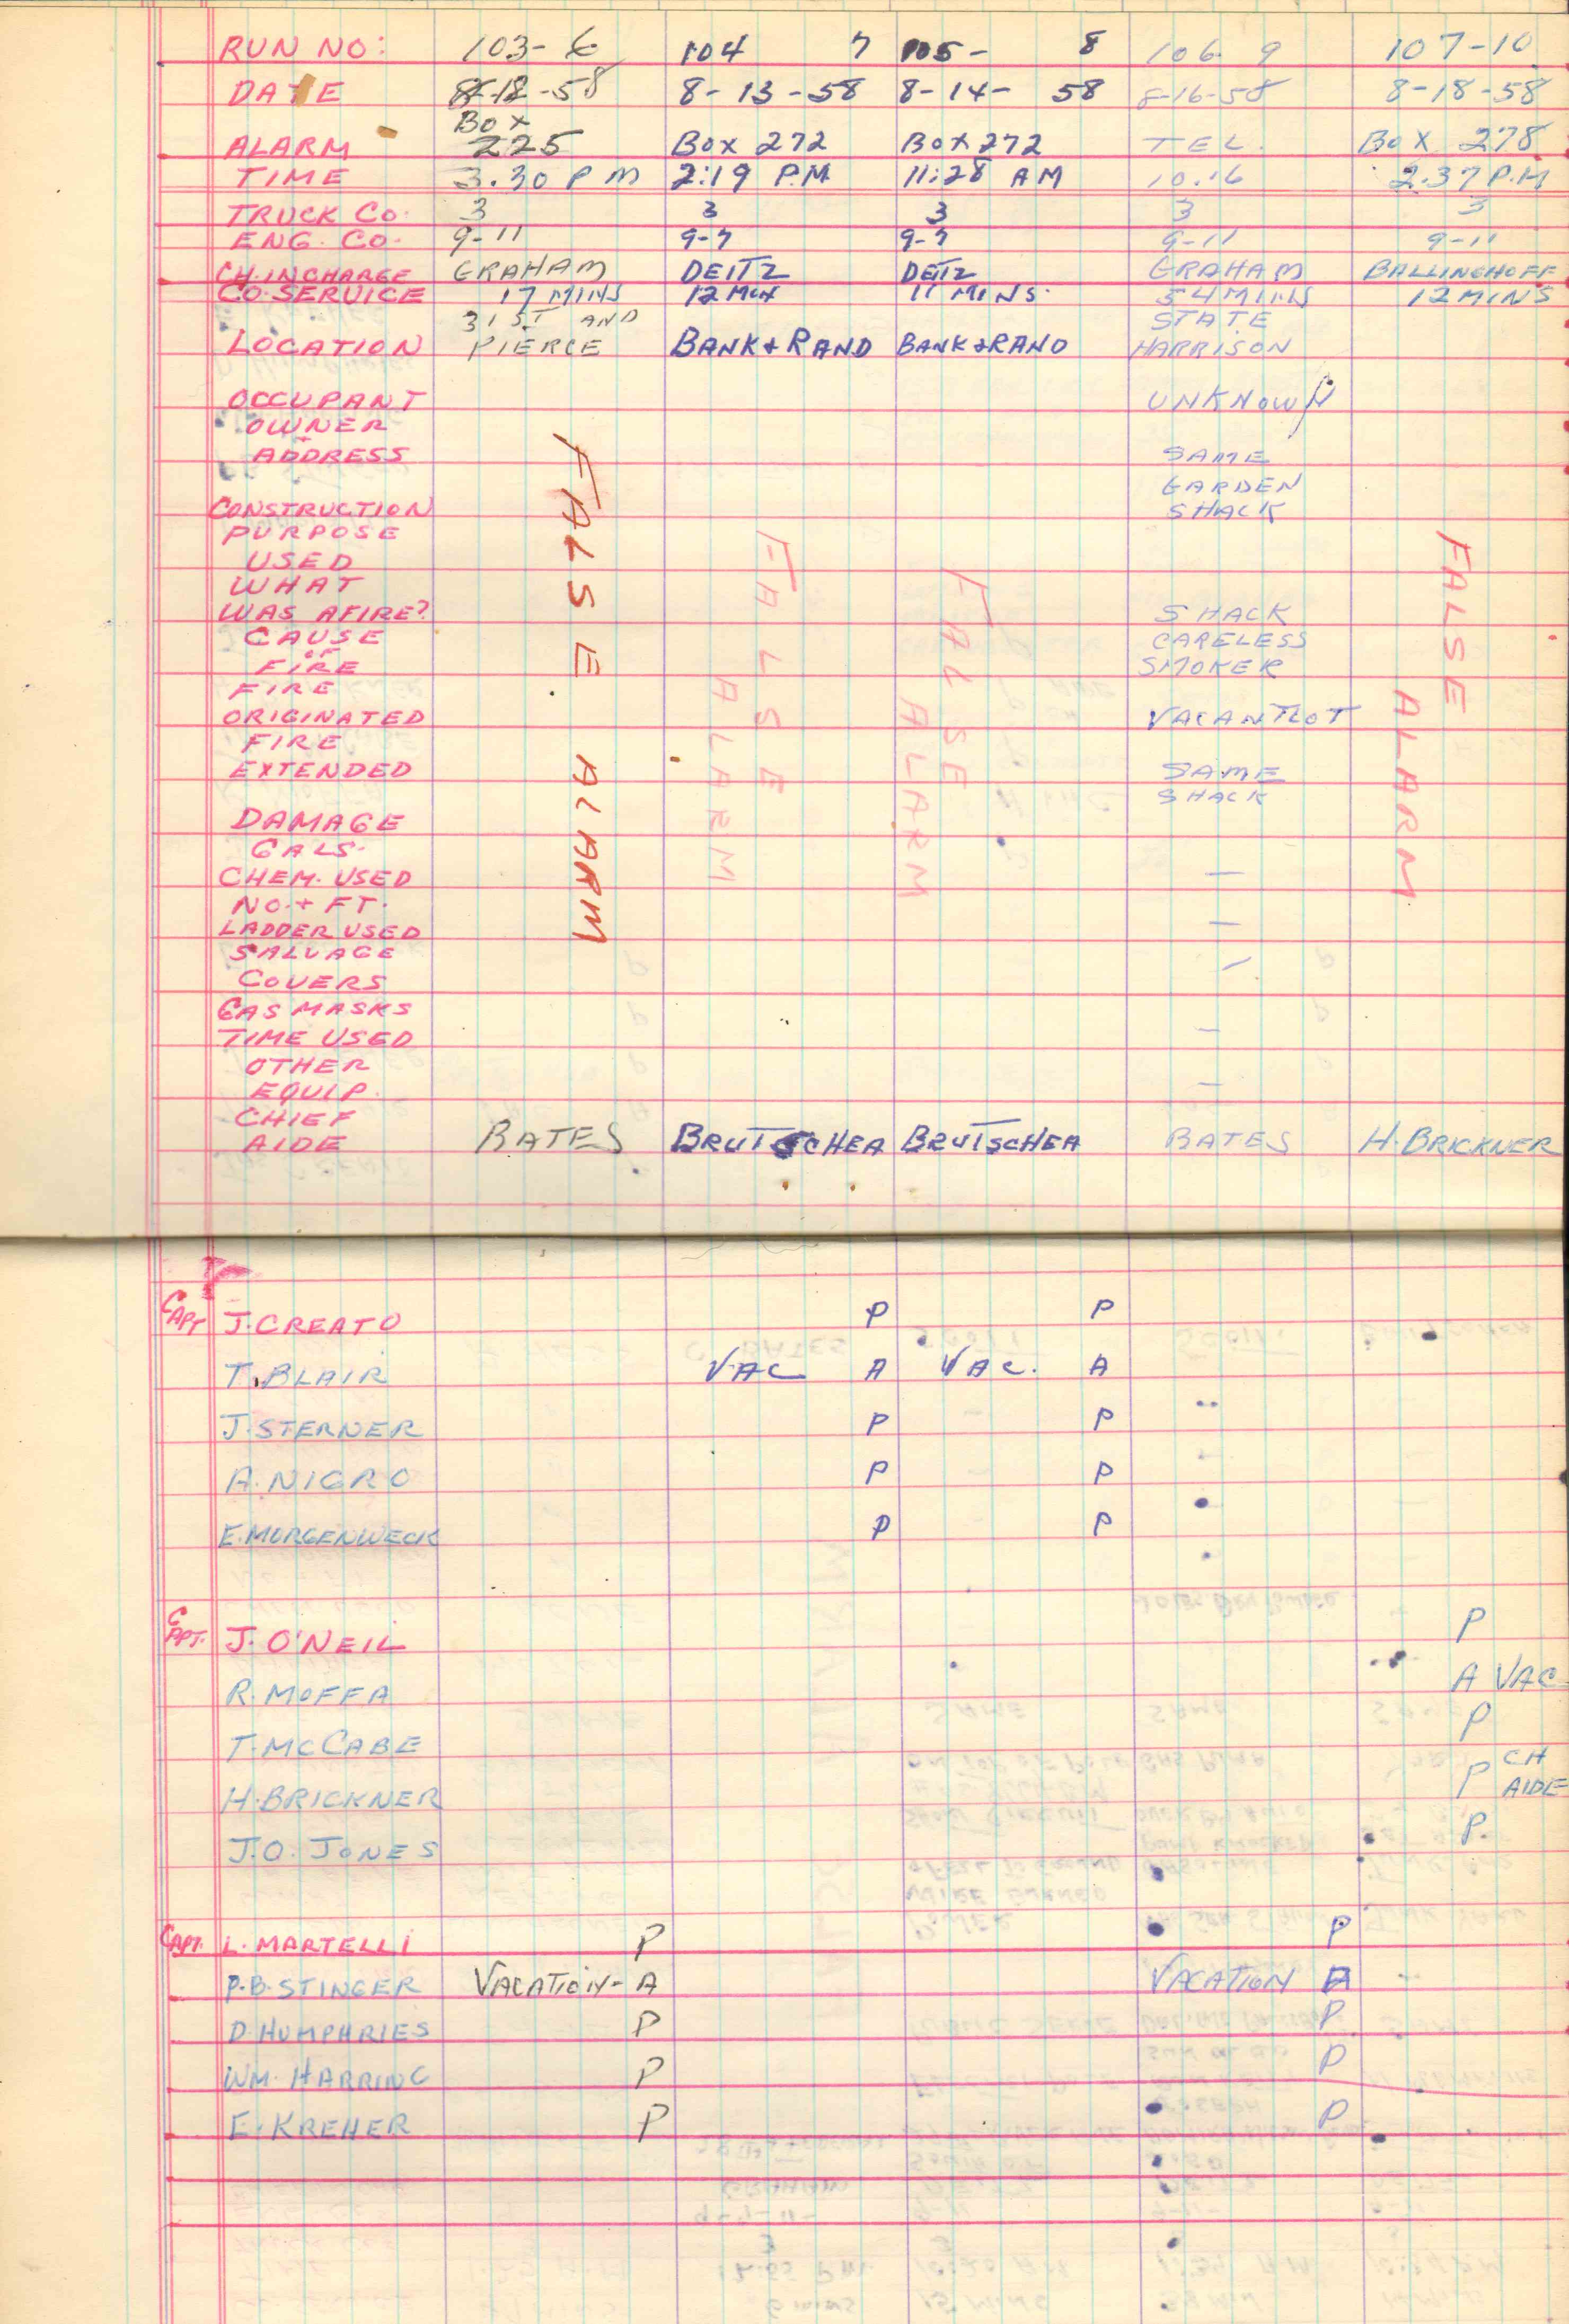 RUN NO: 103-6 104 7 105- 8 106 9 107-10
DATE 8-12-58 8-13-58 8-14-58 8-16-58 8-18-58
BOX
ALARM 225 BOX 272 BOX 272 TEL. BOX 278
TIME 3.30 PM 2:19 P.M 11:28 AM 10.16 2:37 P.M
TRUCK CO. 3 3 3 3 3
ENG. CO. 9-11 9-7 9-7 9-11 9-11
CH. IN CHARGE GRAHAM DEITZ DEITZ GRAHAM BALLINGHOFF
CO. SERVICE 17 MINS 12 11 MINS. 54 MINS 12 MINS
31 ST AND STATE
LOCATION PIERCE BANK + RAND BANK + RAND HARRISON
OCCUPANT UNKNOWN
OWNER
ADDRESS SAME
GARDEN
CONSTRUCTION SHACK
PURPOSE
USED
WHAT
WAS AFIRE? SHACK
CAUSE CARELESS
OF
FIRE SMOKER
FIRE
ORIGINATED VACANT LOT
FIRE
EXTENDED SAME
SHACK
DAMAGE
GALS.
CHEM. USED —
NO. + FT.
LADDER USED —
SALVAGE
COVERS —
GAS MASKS
TIME USED —
OTHER
EQUIP. —
CHIEF
AIDE BATES BRUTSCHEA BRUTSCHEA BATES H. BRICKNER
FALSE ALARM
FALSE
ALARM
FALSE
ALARM
FALSE
ALARM
CAPT J. CREATO P P
T. BLAIR VAC A VAC. A
J. STERNER P P
A. NIGRO P P
E. MORGENWECK P P
CAPT. J. O'NEIL P
R. MOFFA A VAC
T. MCCABE P
H. BRICKNER P CH AIDE
J.O. JONES P
CAPT. L. MARTELLI P P
P.B. STINGER VACATION - A VACATION A
D. HUMPHRIES P P
WM. HARRING P P
E. KREHER P P